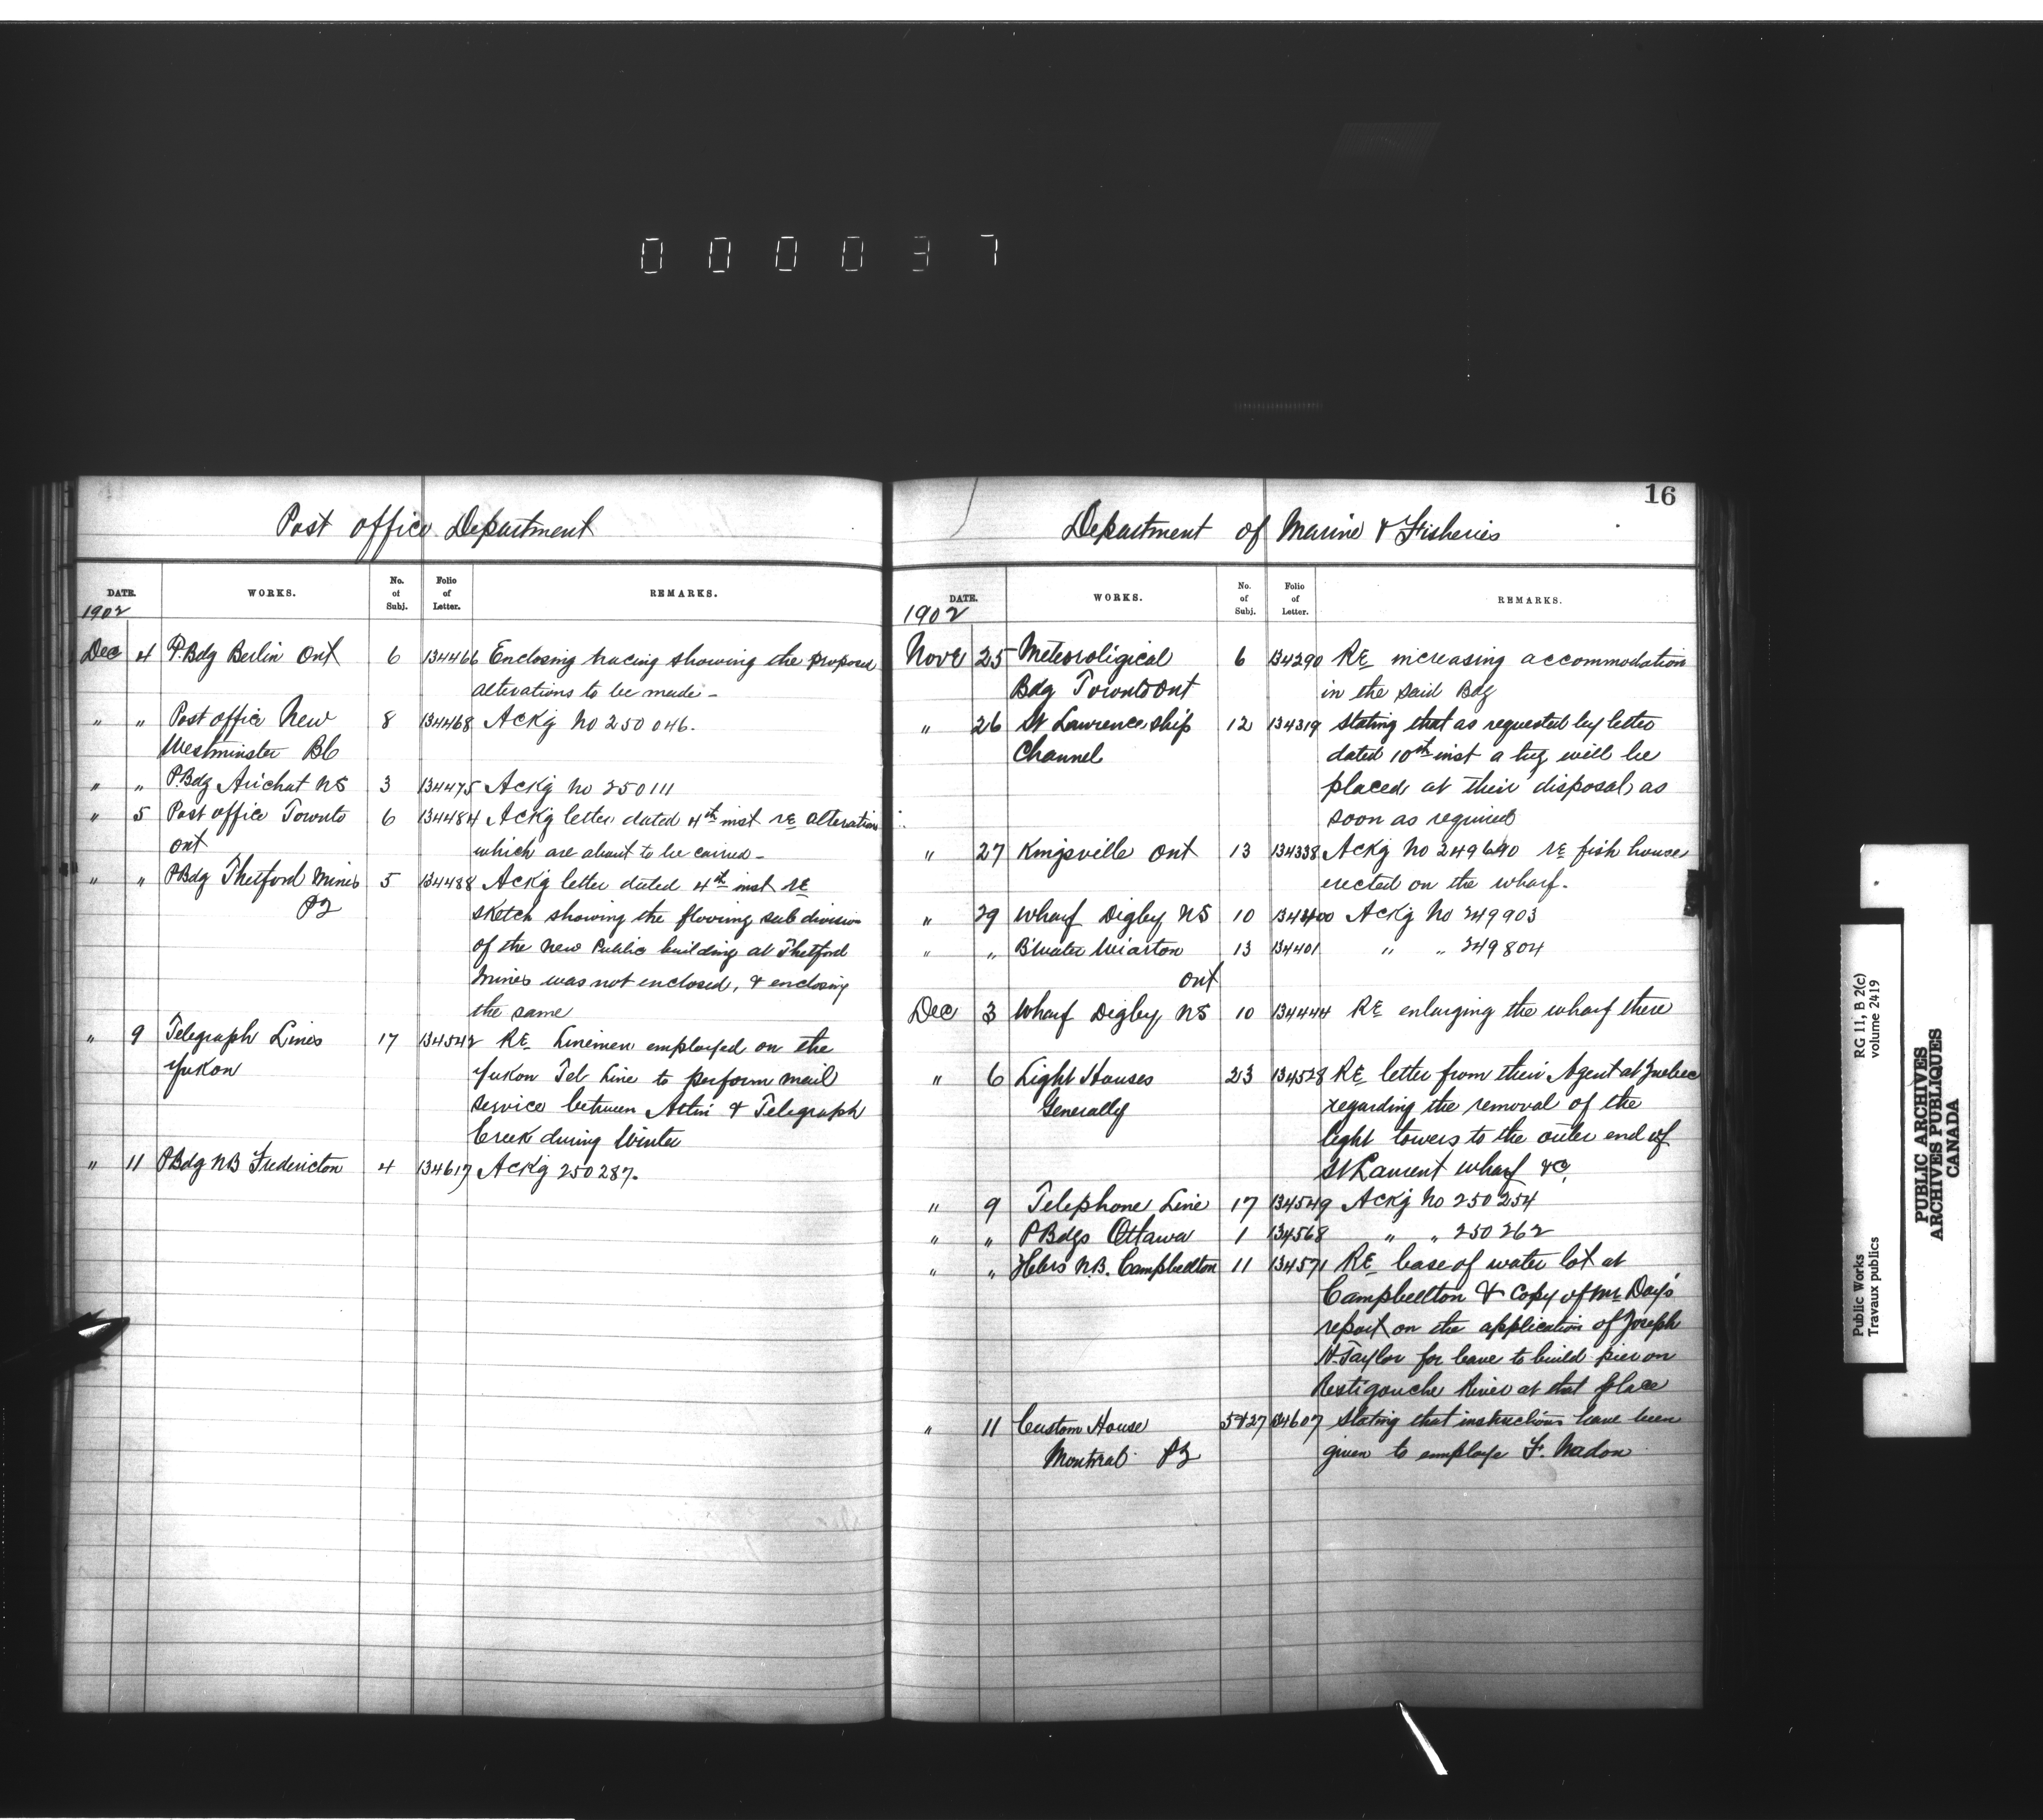 0 0 0 0 3 7
Post office Department
DATE. WORKS. No. of Subj. Folio of Letter. REMARKS.
1902
Dec 4 P.Bdg Berlin Ont 6 134466 Enclosing tracing showing the proposed
alterations to be made -
" " Post office New 8 134468 Ackg No 250046.
Westminster BC
" " P.Bdg Arichat NS 3 134475 Ackg No 250111
" 5 Post office Toronto 6 134484 Ackg letter dated 4th inst re alteration
ont which are about to be carried -
" " PBdg Thetford Mines 5 134488 Ackg letter dated 4th inst re
PQ sketch showing the flooring sub division
of the New Public building at Thetford
Mines was not enclosed, & enclosing
the same
" 9 Telegraph Lines 17 134542 RE Linemen employed on the
Yukon Yukon Tel Line to perform mail
service between Atlin & Telegraph
Creek during Winter
" 11 PBdg NB Fredericton 4 134617 Ackg 250287.
16
Department of Marine & Fisheries
DATE. WORKS. No. of Subj. Folio of Letter. REMARKS.
1902
Nove 25 Meteoroligical 6 134290 RE increasing accommodation
Bdg Toronto Ont in the said Bdg
" 26 St Lawrence ship 12 134319 Stating that as requested by letter
Channel dated 10th inst a tug will be
placed at their disposal as
soon as required
" 27 Kingsville Ont 13 134338 Ackg No 249690 re fish house
erected on the wharf.
" 29 Wharf Digby NS 10 134400 Ackg No 249903
" " B'water Wiarton 13 134401 " " 249804
Ont
Dec 3 Wharf Digby NS 10 134444 RE enlarging the wharf there
" 6 Light Houses 23 134528 RE letter from their Agent at Quebec
Generally regarding the removal of the
light towers to the outer end of
St Laurent wharf &c.
" 9 Telephone Line 17 134549 Ackg No 250254
" " PBdgs Ottawa 1 134568 " " 250262
" " Hbrs N.B. Campbellton 11 134571 RE lease of water lot at
Campbellton & copy of Mr Day's
report on the application of Joseph
H. Taylor for leave to build pier on
Restigouche River at that place
" 11 Custom House 5427 134607 Stating that instructions have been
Montreal PQ given to employe F. Nadon
RG 11, B 2(c)
volume 2419
Public Works
Travaux publics
PUBLIC ARCHIVES
ARCHIVES PUBLIQUES
CANADA